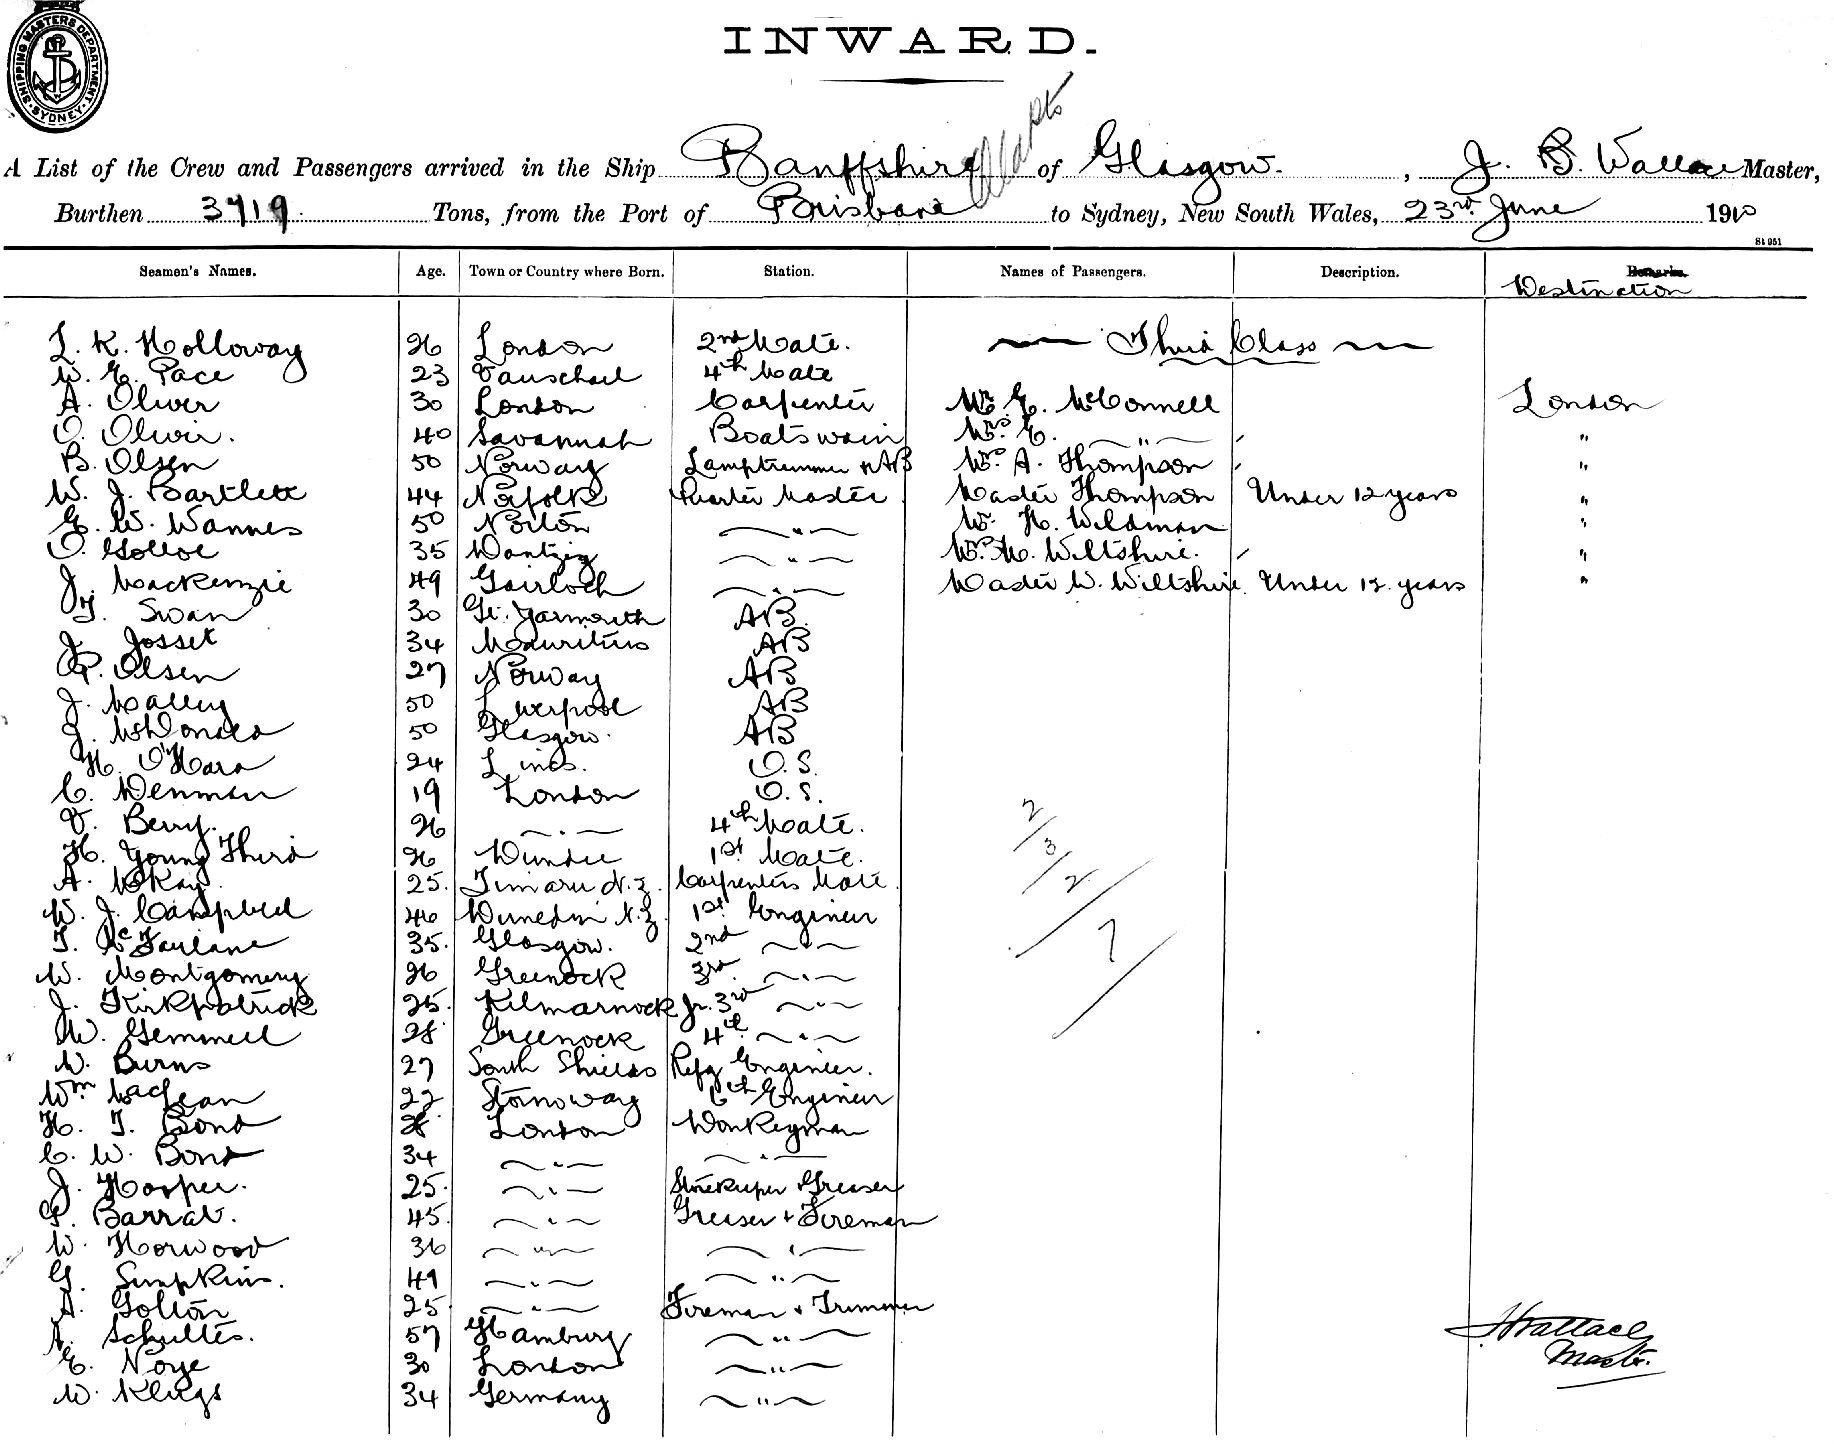 SHIPPING MASTERS DEPARTMENT
SYDNEY
INWARD.
A List of the Crew and Passengers arrived in the Ship Banffshire of Glasgow. , J. B. Wallace Master,
Burthen 3719 Tons, from the Port of Brisbane to Sydney, New South Wales, 23rd June 1910
St 951
Seamen's Names. Age. Town or Country where Born. Station. Names of Passengers. Description. Remarks.
Destination
L. K. Holloway 26 London 2nd Mate. Third Class
W. E. Pace 23 4th Mate
A. Oliver 30 London Carpenter Mr. E. McConnell London
O. Oliver. 40 Savannah Boatswain Mrs. E. " "
B. Olsen 50 Norway Lamptrimmer & AB Mrs. A. Thompson "
W. J. Bartlett 44 Norfolk Quarter Master Master Thompson Under 12 years "
E. W. Wannes 50 Norton " Mr. H. Wildman "
O. 35 Dantzig " Mrs. M. Wiltshire. "
J. Mackenzie 49 Gairloch " Master W. Wiltshire Under 12 years "
T. Swan 30 Gt. Yarmouth AB.
J. Josset 34 Mauritius AB
P. Olsen 27 Norway AB
J. Malley 50 Liverpool AB
J. McDonald 50 Glasgow. AB
H. O'Hara 24 Lincs. O.S.
C. Denman 19 London O.S.
V. Berry. 26 " 4th Mate.
H. Young Third 26 Dundee 1st Mate.
A. McKay. 25. Timaru N.Z. Carpenters Mate.
W. J. Campbell 46 Dunedin N.Z. 1st Engineer
T. McFarlane 35. Glasgow. 2nd "
W. Montgomery 26 Greenock 3rd "
J. Kirkpatrick 25. Kilmarnock Jr. 3rd "
W. Gemmell 28 Greenock 4th "
W. Burns 27 South Shields Refg Engineer.
Wm MacLean 22 Stornoway Engineer
H. T. Bond London Donkeyman
C. W. Bond 34 " "
J. Hooper. 25. " Storekeeper & Greaser
P. Barrat. 45. " Greaser & Fireman
W. Horwood 36 " "
G. Simpkins. 49 " "
A. Golton 25 " Fireman & Trimmer
A. Schultes. 57 Hamburg "
E. Noye 30 London "
W. Klugs 34 Germany "
2
3
2
7
JBWallace
Master.